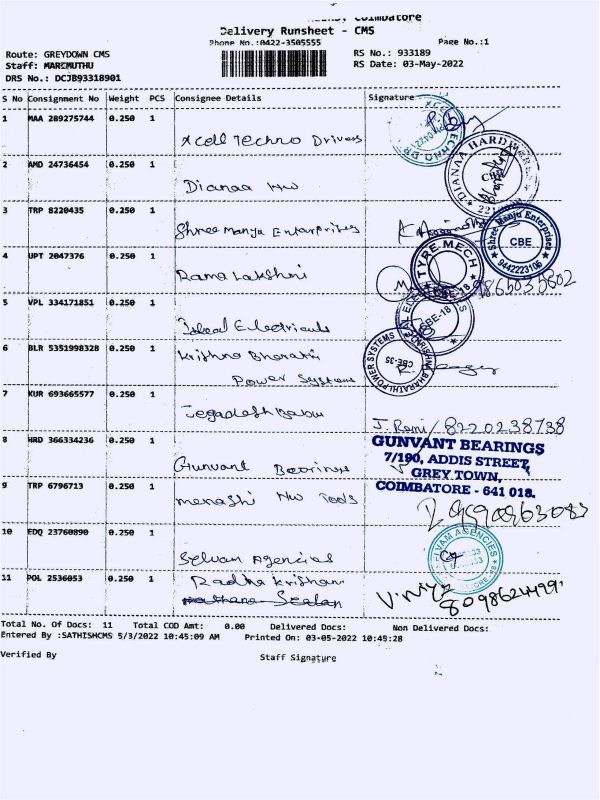 Coimbatore
Delivery Runsheet - CMS
Phone No.:0422-3505555
Page No.:1
Route: GREYDOWN CMS
RS No.: 933189
Staff: MARIMUTHU
RS Date: 03-May-2022
DRS No.: DCJB93318901
S No Consignment No Weight PCS Consignee Details Signature
1 MAA 289275744 0.250 1
Xcell Techno Drives
2 AMD 24736454 0.250 1
Dianaa HW
DIANAA HARDWARE
3 TRP 8220435 0.250 1
Shree Manju Enterprises
Shree Manju Enterprises
CBE
9442223106
4 UPT 2047376 0.250 1
Rama Lakshmi
TYRE MECH
CBE-18
9865035802
5 VPL 334171851 0.250 1
Ideal Electricals
CBE-18
6 BLR 5351998328 0.250 1
Krishna Bharathi
Power Systems
KRISHNA BHARATHI POWER SYSTEMS
CBE-35
7 KUR 693665577 0.250 1
Jegadesh Babu
J. Rami / 8220238738
8 HRD 366334236 0.250 1
Gunvant Bearings
GUNVANT BEARINGS
7/190, ADDIS STREET,
GREY TOWN,
COIMBATORE - 641 018.
9 TRP 6796713 0.250 1
Menashi HW Tools
10 EDQ 23760890 0.250 1
Selvam Agencies
AGENCIES
11 POL 2536053 0.250 1
Radha Krishani
8098624499
Total No. Of Docs: 11 Total COD Amt: 0.00 Delivered Docs: Non Delivered Docs:
Entered By :SATHISHCMS 5/3/2022 10:45:09 AM Printed On: 03-05-2022 10:45:28
Verified By Staff Signature